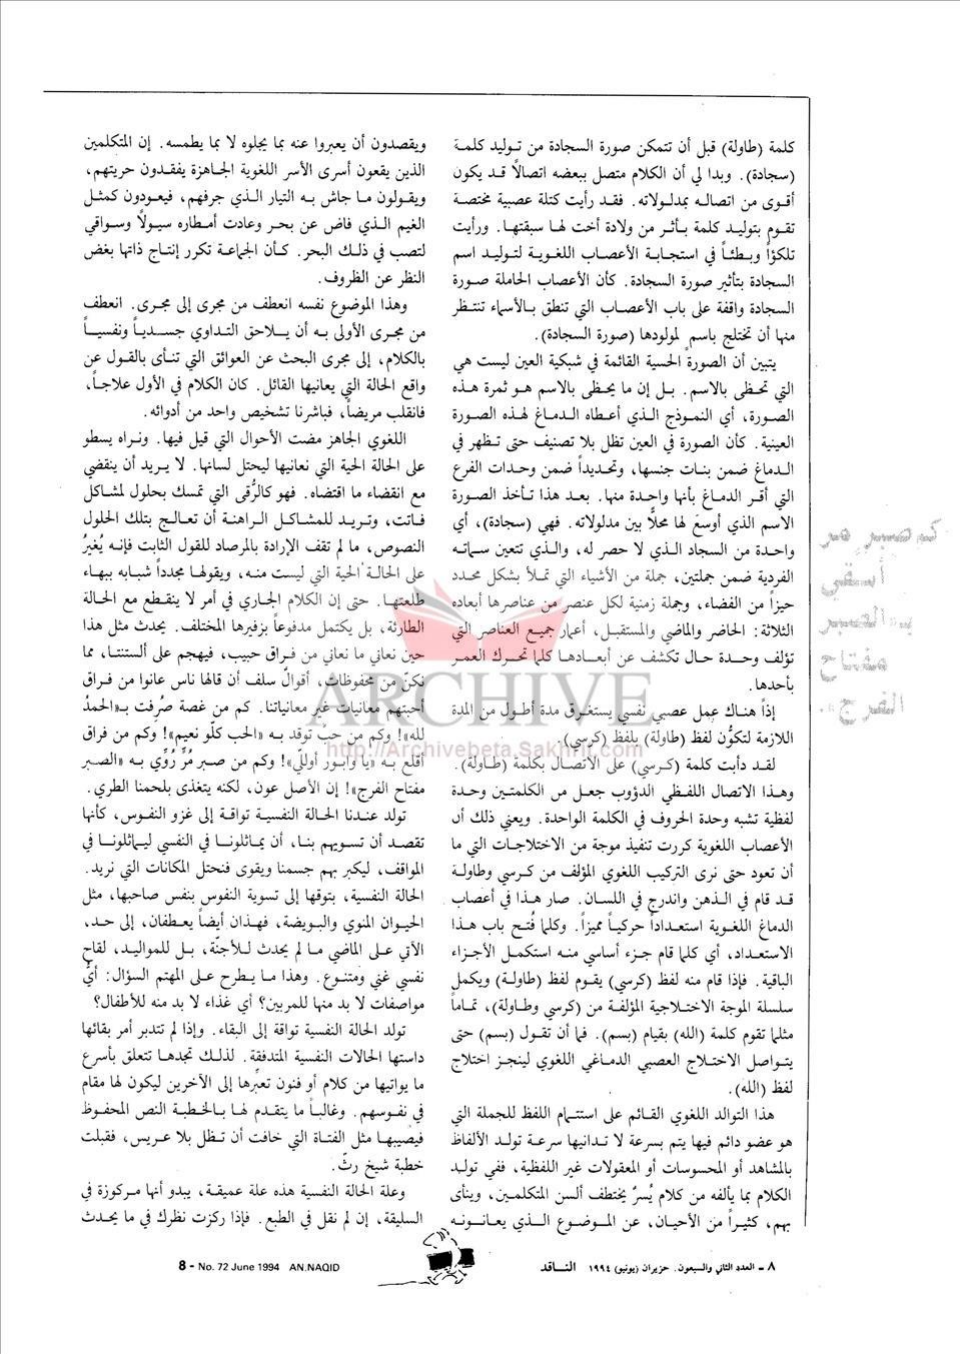 كلمة (طاولة) قبل أن تتمكن صورة السجادة من توليد كلمة
(سجادة). وبدا لي أن الكلام متصل ببعضه اتصالًا قد يكون
أقوى من اتصاله بمدلولاته. فقد رأيت كتلة عصبية مختصة
تقوم بتوليد كلمة بأثر من ولادة أخت لها سبقتها. ورأيت
تلكؤاً وبطئاً في استجابة الأعصاب اللغوية لتوليد اسم
السجادة بتأثير صورة السجادة. كأن الأعصاب الحاملة صورة
السجادة واقفة على باب الأعصاب التي تنطق بالأسماء تنتظر
منها أن تختلج باسم لمولودها (صورة السجادة).
يتبين أن الصورة الحسية القائمة في شبكية العين ليست هي
التي تحظى بالاسم. بل إن ما يحظى بالاسم هو ثمرة هذه
الصورة، أي النموذج الذي أعطاه الدماغ لهذه الصورة
العينية. كأن الصورة في العين تظل بلا تصنيف حتى تظهر في
الدماغ ضمن بنات جنسها، وتحديداً ضمن وحدات الفرع
التي أقر الدماغ بأنها واحدة منها. بعد هذا تأخذ الصورة
الاسم الذي أوسع لها محلًّا بين مدلولاته. فهي (سجادة)، أي
واحدة من السجاد الذي لا حصر له، والذي تتعين سماته
الفردية ضمن جملتين، جملة من الأشياء التي تملأ بشكل محدد
حيزاً من الفضاء، وجملة زمنية لكل عنصر من عناصرها أبعاده
الثلاثة: الحاضر والماضي والمستقبل، أعمار جميع العناصر التي
تؤلف وحدة حال تكشف عن أبعادها كلما تحرك العمر
بأحدها.
إذاً هناك عمل عصبي نفسي يستغرق مدة أطول من المدة
اللازمة لتكوُّن لفظ (طاولة) بلفظ (كرسي).
لقد دأبت كلمة (كرسي) على الاتصال بكلمة (طاولة).
وهذا الاتصال اللفظي الدؤوب جعل من الكلمتين وحدة
لفظية تشبه وحدة الحروف في الكلمة الواحدة. ويعني ذلك أن
الأعصاب اللغوية كررت تنفيذ موجة من الاختلاجات التي ما
أن تعود حتى نرى التركيب اللغوي المؤلف من كرسي وطاولة
قد قام في الذهن واندرج في اللسان. صار هذا في أعصاب
الدماغ اللغوية استعداداً حركياً مميزاً. وكلما فُتح باب هذا
الاستعداد، أي كلما قام جزء أساسي منه استكمل الأجزاء
الباقية. فإذا قام منه لفظ (كرسي) يقوم لفظ (طاولة) ويكمل
سلسلة الموجة الاختلاجية المؤلفة من (كرسي وطاولة)، تماماً
مثلما تقوم كلمة (الله) بقيام (بسم). فما أن تقول (بسم) حتى
يتواصل الاختلاج العصبي الدماغي اللغوي لينجز اختلاج
لفظ (الله).
هذا التوالد اللغوي القائم على استتمام اللفظ للجملة التي
هو عضو دائم فيها يتم بسرعة لا تدانيها سرعة تولد الألفاظ
بالمشاهد أو المحسوسات أو المعقولات غير اللفظية، ففي تولد
الكلام بما يألفه من كلام يُسرٌ يختطف ألسن المتكلمين، وينأى
بهم، كثيراً من الأحيان، عن الموضوع الذي يعانونه
ويقصدون أن يعبروا عنه بما يجلوه لا بما يطمسه. إن المتكلمين
الذين يقعون أسرى الأسر اللغوية الجاهزة يفقدون حريتهم،
ويقولون ما جاش به التيار الذي جرفهم، فيعودون كمثل
الغيم الذي فاض عن بحر وعادت أمطاره سيولًا وسواقي
لتصب في ذلك البحر. كأن الجماعة تكرر إنتاج ذاتها بغض
النظر عن الظروف.
وهذا الموضوع نفسه انعطف من مجرى إلى مجرى. انعطف
من مجرى الأولى به أن يلاحق التداوي جسدياً ونفسياً
بالكلام، إلى مجرى البحث عن العوائق التي تنأى بالقول عن
واقع الحالة التي يعانيها القائل. كان الكلام في الأول علاجاً،
فانقلب مريضاً، فباشرنا تشخيص واحد من أدوائه.
اللغوي الجاهز مضت الأحوال التي قيل فيها. ونراه يسطو
على الحالة الحية التي نعانيها ليحتل لسانها. لا يريد أن ينقضي
مع انقضاء ما اقتضاه. فهو كالرُّقى التي تمسك بحلول لمشاكل
فاتت، وتريد للمشاكل الراهنة أن تعالج بتلك الحلول
النصوص، ما لم تقف الإرادة بالمرصاد للقول الثابت فإنه يُغيرُ
على الحالة الحية التي ليست منه، ويقولها مجدداً شبابه ببهاء
طلعتها. حتى إن الكلام الجاري في أمر لا ينقطع مع الحالة
الطارئة، بل يكتمل مدفوعاً بزفيرها المختلف. يحدث مثل هذا
حين نعاني ما نعاني من فراق حبيب، فيهجم على ألسنتنا، مما
نكنّ من محفوظات، أقوالٌ سلف أن قالها ناس عانوا من فراق
أحبتهم معانيات غير معانياتنا. كم من غصة صُرفت بـ«الحمدُ
لله»! وكم من حب توقد به «الحب كلّو نعيم»! وكم من فراق
أقلع به «يا وابور أوللّي»! وكم من صبر مُرٍّ رُوِّي به «الصبر
مفتاح الفرج»! إن الأصل عون، لكنه يتغذى بلحمنا الطري.
تولد عندنا الحالة النفسية تواقة إلى غزو النفوس، كأنها
تقصد أن تسويهم بنا، أن يماثلونا في النفسي ليماثلونا في
المواقف، ليكبر بهم جسمنا ويقوى فنحتل المكانات التي نريد.
الحالة النفسية، بتوقها إلى تسوية النفوس بنفس صاحبها، مثل
الحيوان المنوي والبويضة، فهذان أيضاً يعطفان، إلى حد،
الآتي على الماضي ما لم يحدث للأجنّة، بل للمواليد، لقاح
نفسي غني ومتنوع. وهذا ما يطرح على المهتم السؤال: أيُّ
مواصفات لا بد منها للمربين؟ أي غذاء لا بد منه للأطفال؟
تولد الحالة النفسية تواقة إلى البقاء. وإذا لم تتدبر أمر بقائها
داستها الحالات النفسية المتدفقة. لذلك تجدها تتعلق بأسرع
ما يواتيها من كلام أو فنون تعبِّرها إلى الآخرين ليكون لها مقام
في نفوسهم. وغالباً ما يتقدم لها بالخطبة النص المحفوظ
فيصيبها مثل الفتاة التي خافت أن تظل بلا عريس، فقبلت
خطبة شيخ رثّ.
وعلة الحالة النفسية هذه علة عميقة، يبدو أنها مركوزة في
السليقة، إن لم نقل في الطبع. فإذا ركزت نظرك في ما يحدث
كم صبر مر
أسقي
بـ«الصبر
مفتاح
الفرج».
ARCHIVE
http://Archivebeta.Sakhrit.com
٨ - العدد الثاني والسبعون. حزيران (يونيو) ١٩٩٤ الناقد
8 - No. 72 June 1994 AN.NAQID